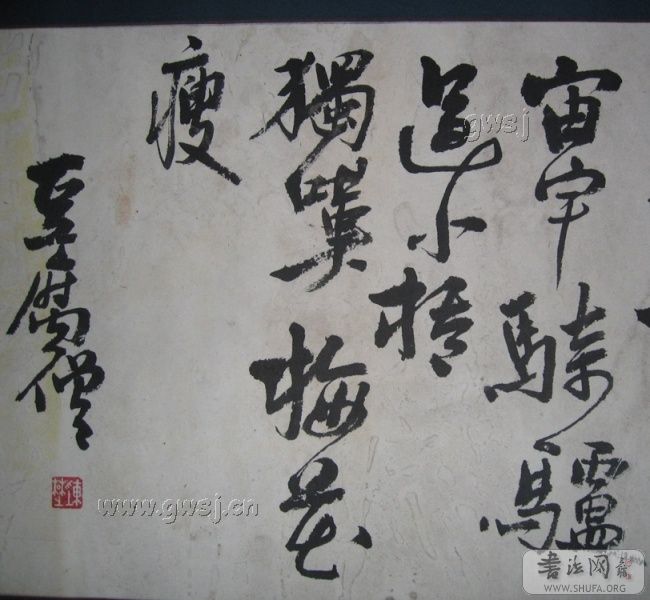 宙宇騎驢
過小橋
獨嘆梅花
瘦
腐僧
www.gwsj.cn
gwsj
书法网
WWW.SHUFA.ORG